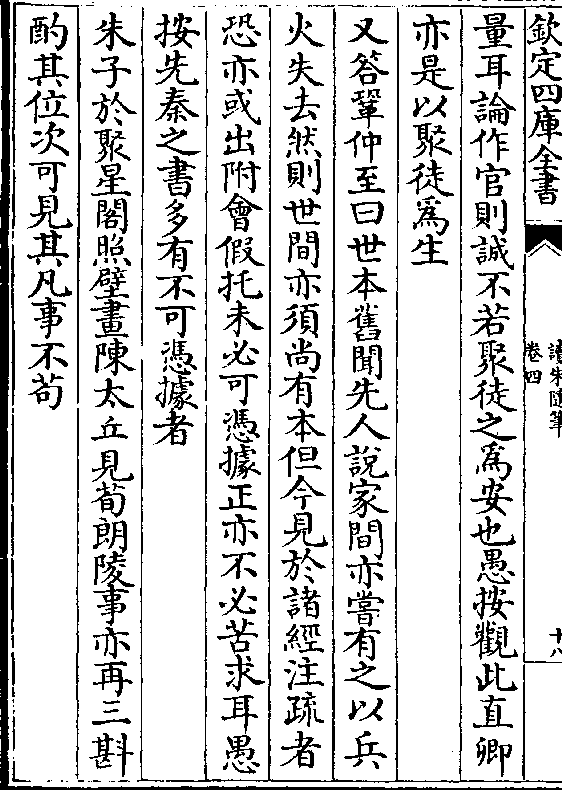 欽定四庫全書
讀朱隨筆
卷四
十八
量耳論作官則誠不若聚徒之爲安也愚按觀此直卿
亦是以聚徒爲生
又答鞏仲至曰世本舊聞先人說家間亦嘗有之以兵
火失去然則世間亦須尚有本但今見於諸經注疏者
恐亦或出附會假托未必可憑據正亦不必苦求耳愚
按先秦之書多有不可憑據者
朱子於聚星閣照壁畫陳太丘見荀朗陵事亦再三斟
酌其位次可見其凡事不苟